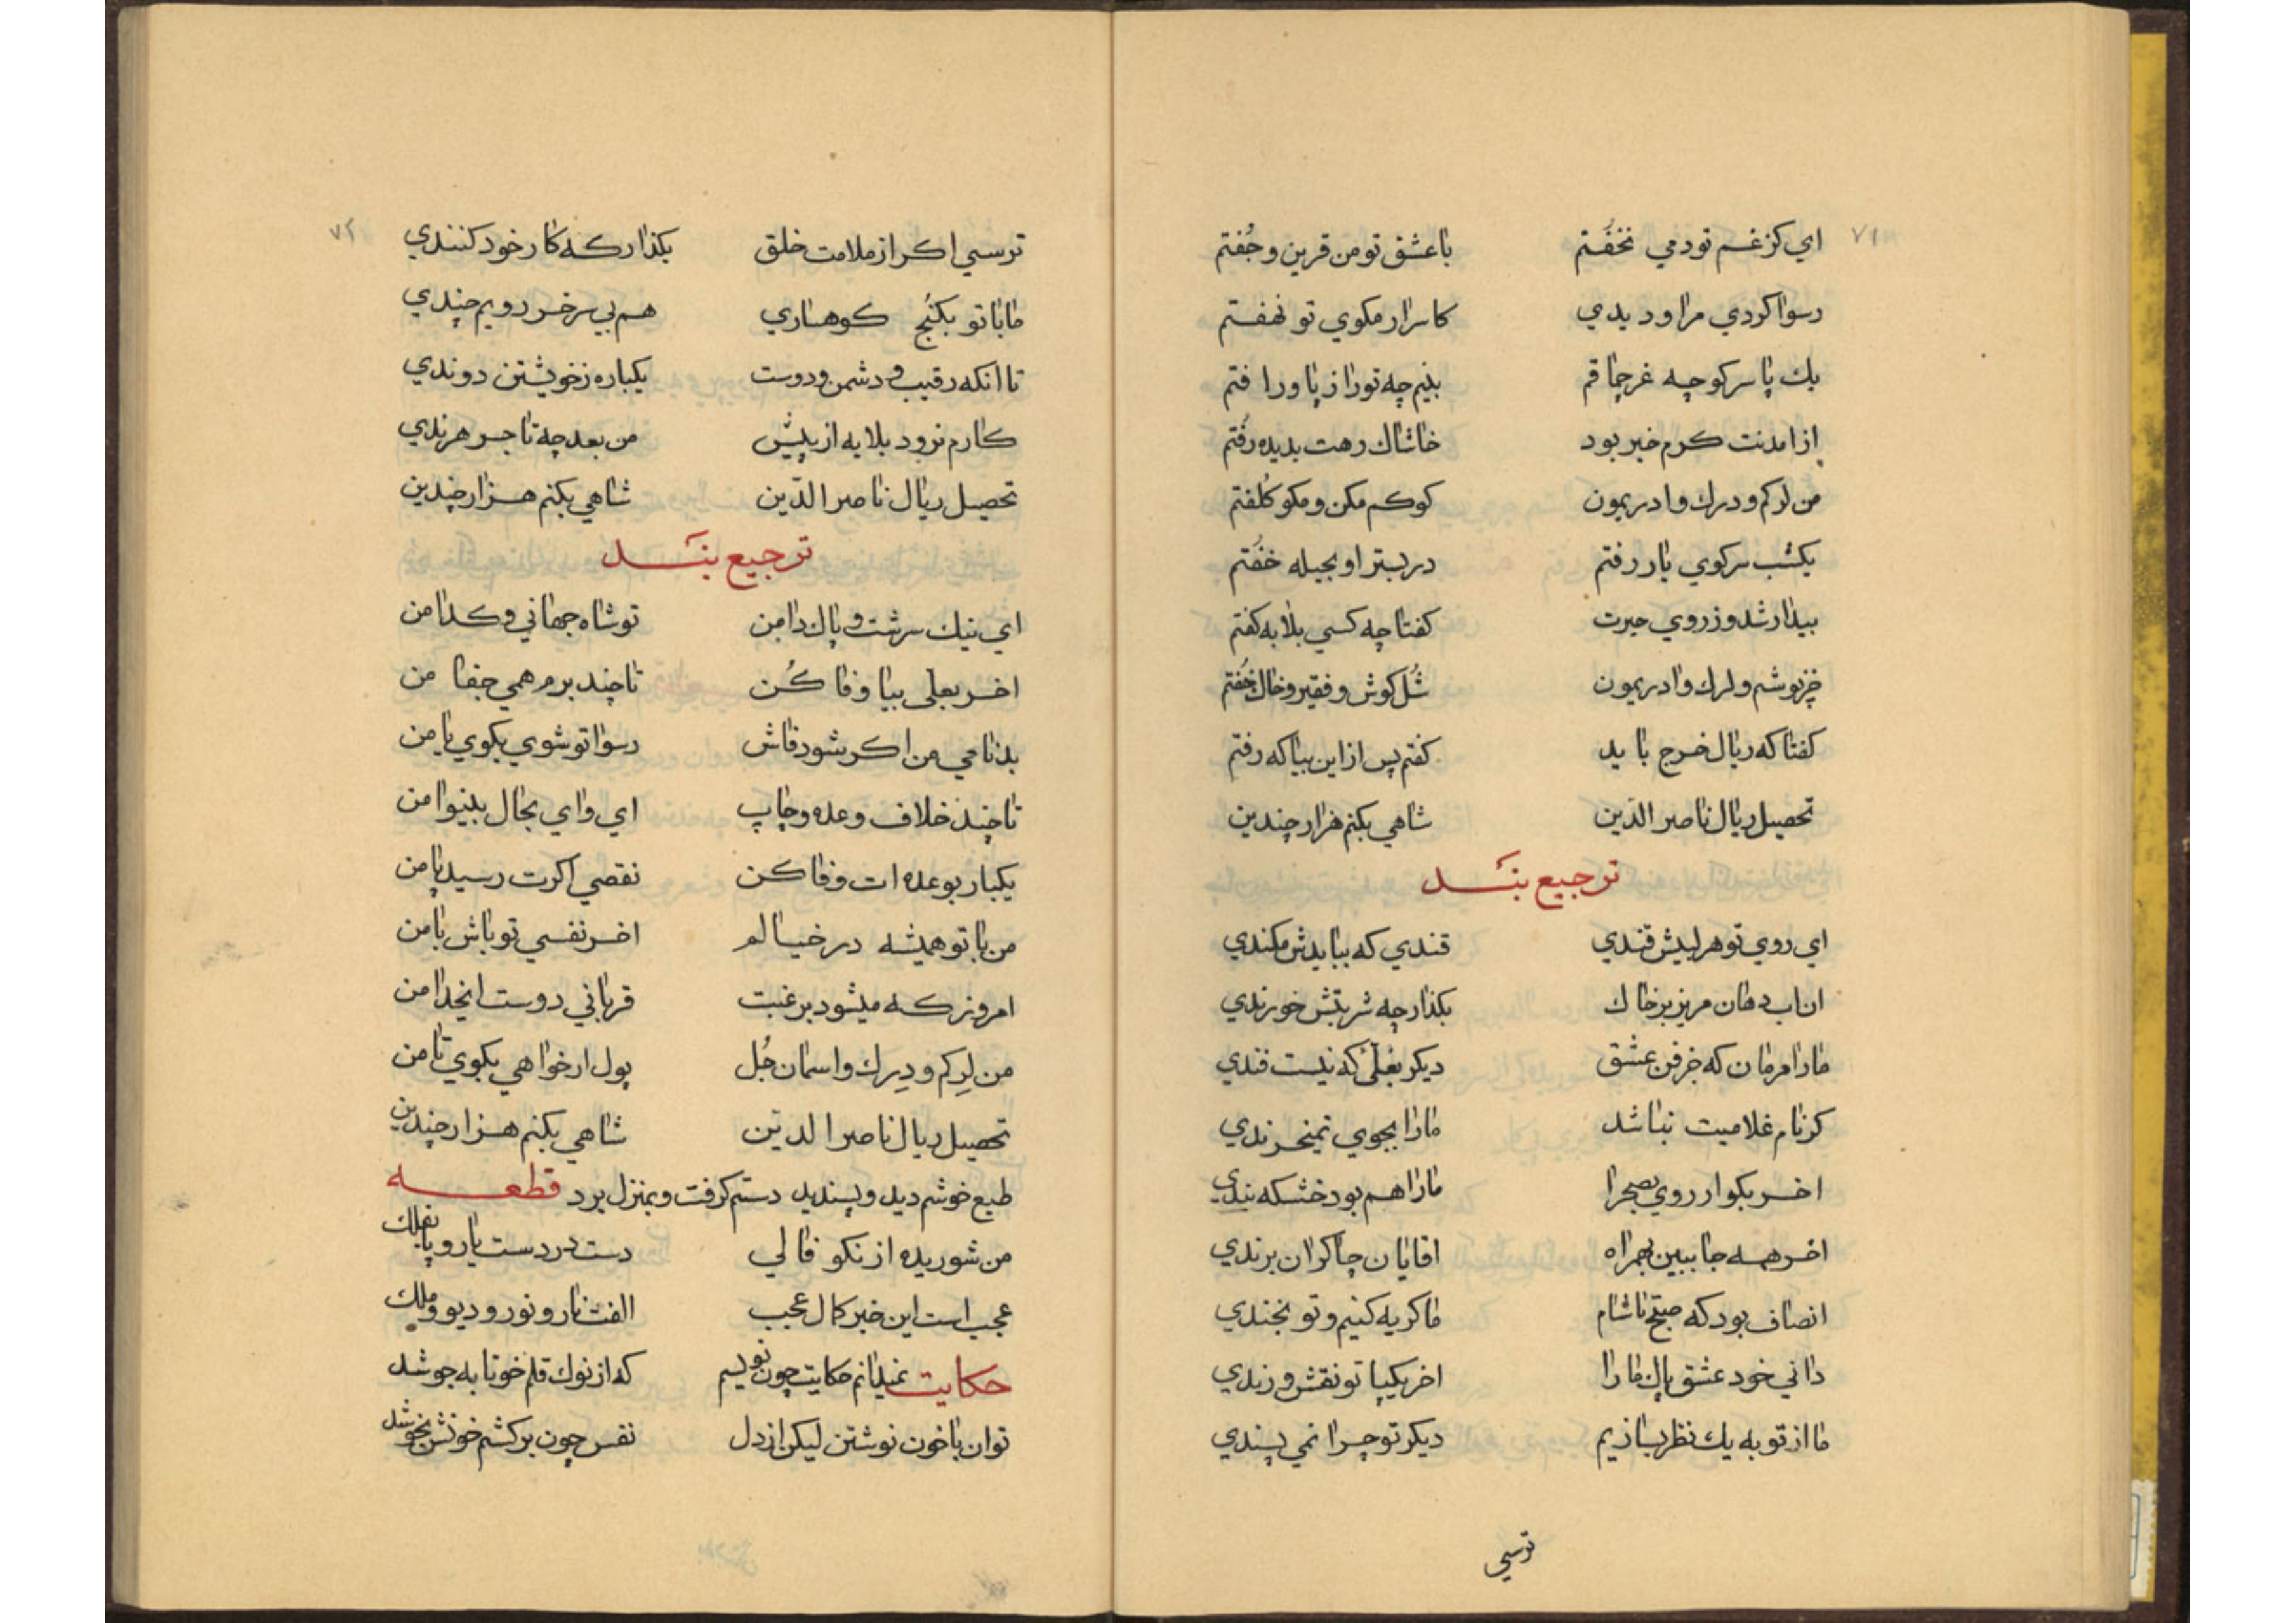 ٧١
اي كز غم تو دمي نخفتم با عشق تو من قرين و جُفتم
رسوا كردي مرا و ديدي كاسرار مكوي تو نهفتم
يك پا سر كوچه غرچماقم بنيم چه تورا ز پا ورا فتم
از امدنت كرم خبر بود خاشاك رهت بديده رفتم
من لركم و درك وادريمون كوكم مكن و مكو كلفتم
يكشب سر كوي يار رفتم در بستر او بحيله خفتم
بيدار شد و ز روي حيرت كفتا چه كسي بلابه كفتم
خزنوشم و لرك وادريمون شُل كوش و فقير و خاك خفتم
كفتا كه ريال خرج بايد كفتم پس از اين بيا كه رفتم
تحصيل ريال ناصر الدّين شاهي بكنم هزار چندين
ترجيع بند
اي روي تو هر لبيش قندي قندي كه ببايدش مكندي
ان اب دهان مريز بر خاك بكذار چه شربتش خورندي
مارا مرمان كه جز فن عشق ديكر بغلي كه نيست فندي
كر نام غلاميت نباشد مارا بجوي نميخرندي
اخر بكو ار روي بصحرا مارا هم بود خشكه بندي
اخر همه جا ببين بهمراه اقايان چاكران برندي
انصاف بود كه صبح تا شام ما كريه كنيم و تو بخندي
داني خود عشق پاك مارا اخر بكيپا تو نقش و زندي
ما از تو به يك نظر بسازيم ديكر تو چرا نمي پسندي
ترسي
٧٢
ترسي اكر از ملامت خلق بكذار كه كار خود كنندي
ما با تو بكُنج كوهساري هم بي سر خر رويم چندي
تا انكه رقيب و دشمن و دوست يكباره ز خويشتن دوندي
كارم نرود بلابه از پيش من بعد چه تا جر هرندي
تحصيل ريال ناصر الدّين شاهي بكنم هزار چندين
ترجيع بند
اي نيك سرشت و پاك دامن تو شاه جهاني و كدا من
اخر بعلي بيا وفا كُن تا چند برم همي جفا من
بدنامي من اكر شود فاش رسوا تو شوي بكوي يا من
تا چند خلاف وعده و چاپ اي واي بحال بينوا من
يكبار بوعده ات وفا كن نقصي اكرت رسيد پا من
من با تو هميشه در خيالم اخر نفسي تو باش با من
امروز كه ميشود برغبت قرباني دوست ايخدا من
من لِركم و دِرك و اسمان جُل پول ار خواهي بكوي تا من
تحصيل ريال ناصر الدين شاهي بكنم هزار چندين
طبع خوشم ديد و پسنديد دستم كرفت و بمنزل برد قطعه
من شوريده از نكو فالي دست در دست يار و پا بفلك
عجب است اين خبر كمال عجب الفت نار و نور و ديو و ملك
حكايت غيدانم حكايت چون نويسم كه از نوك قلم خونابه جوشد
توان با خون نوشتن ليكن از دل نفس چون بركشم خونش بخوشد